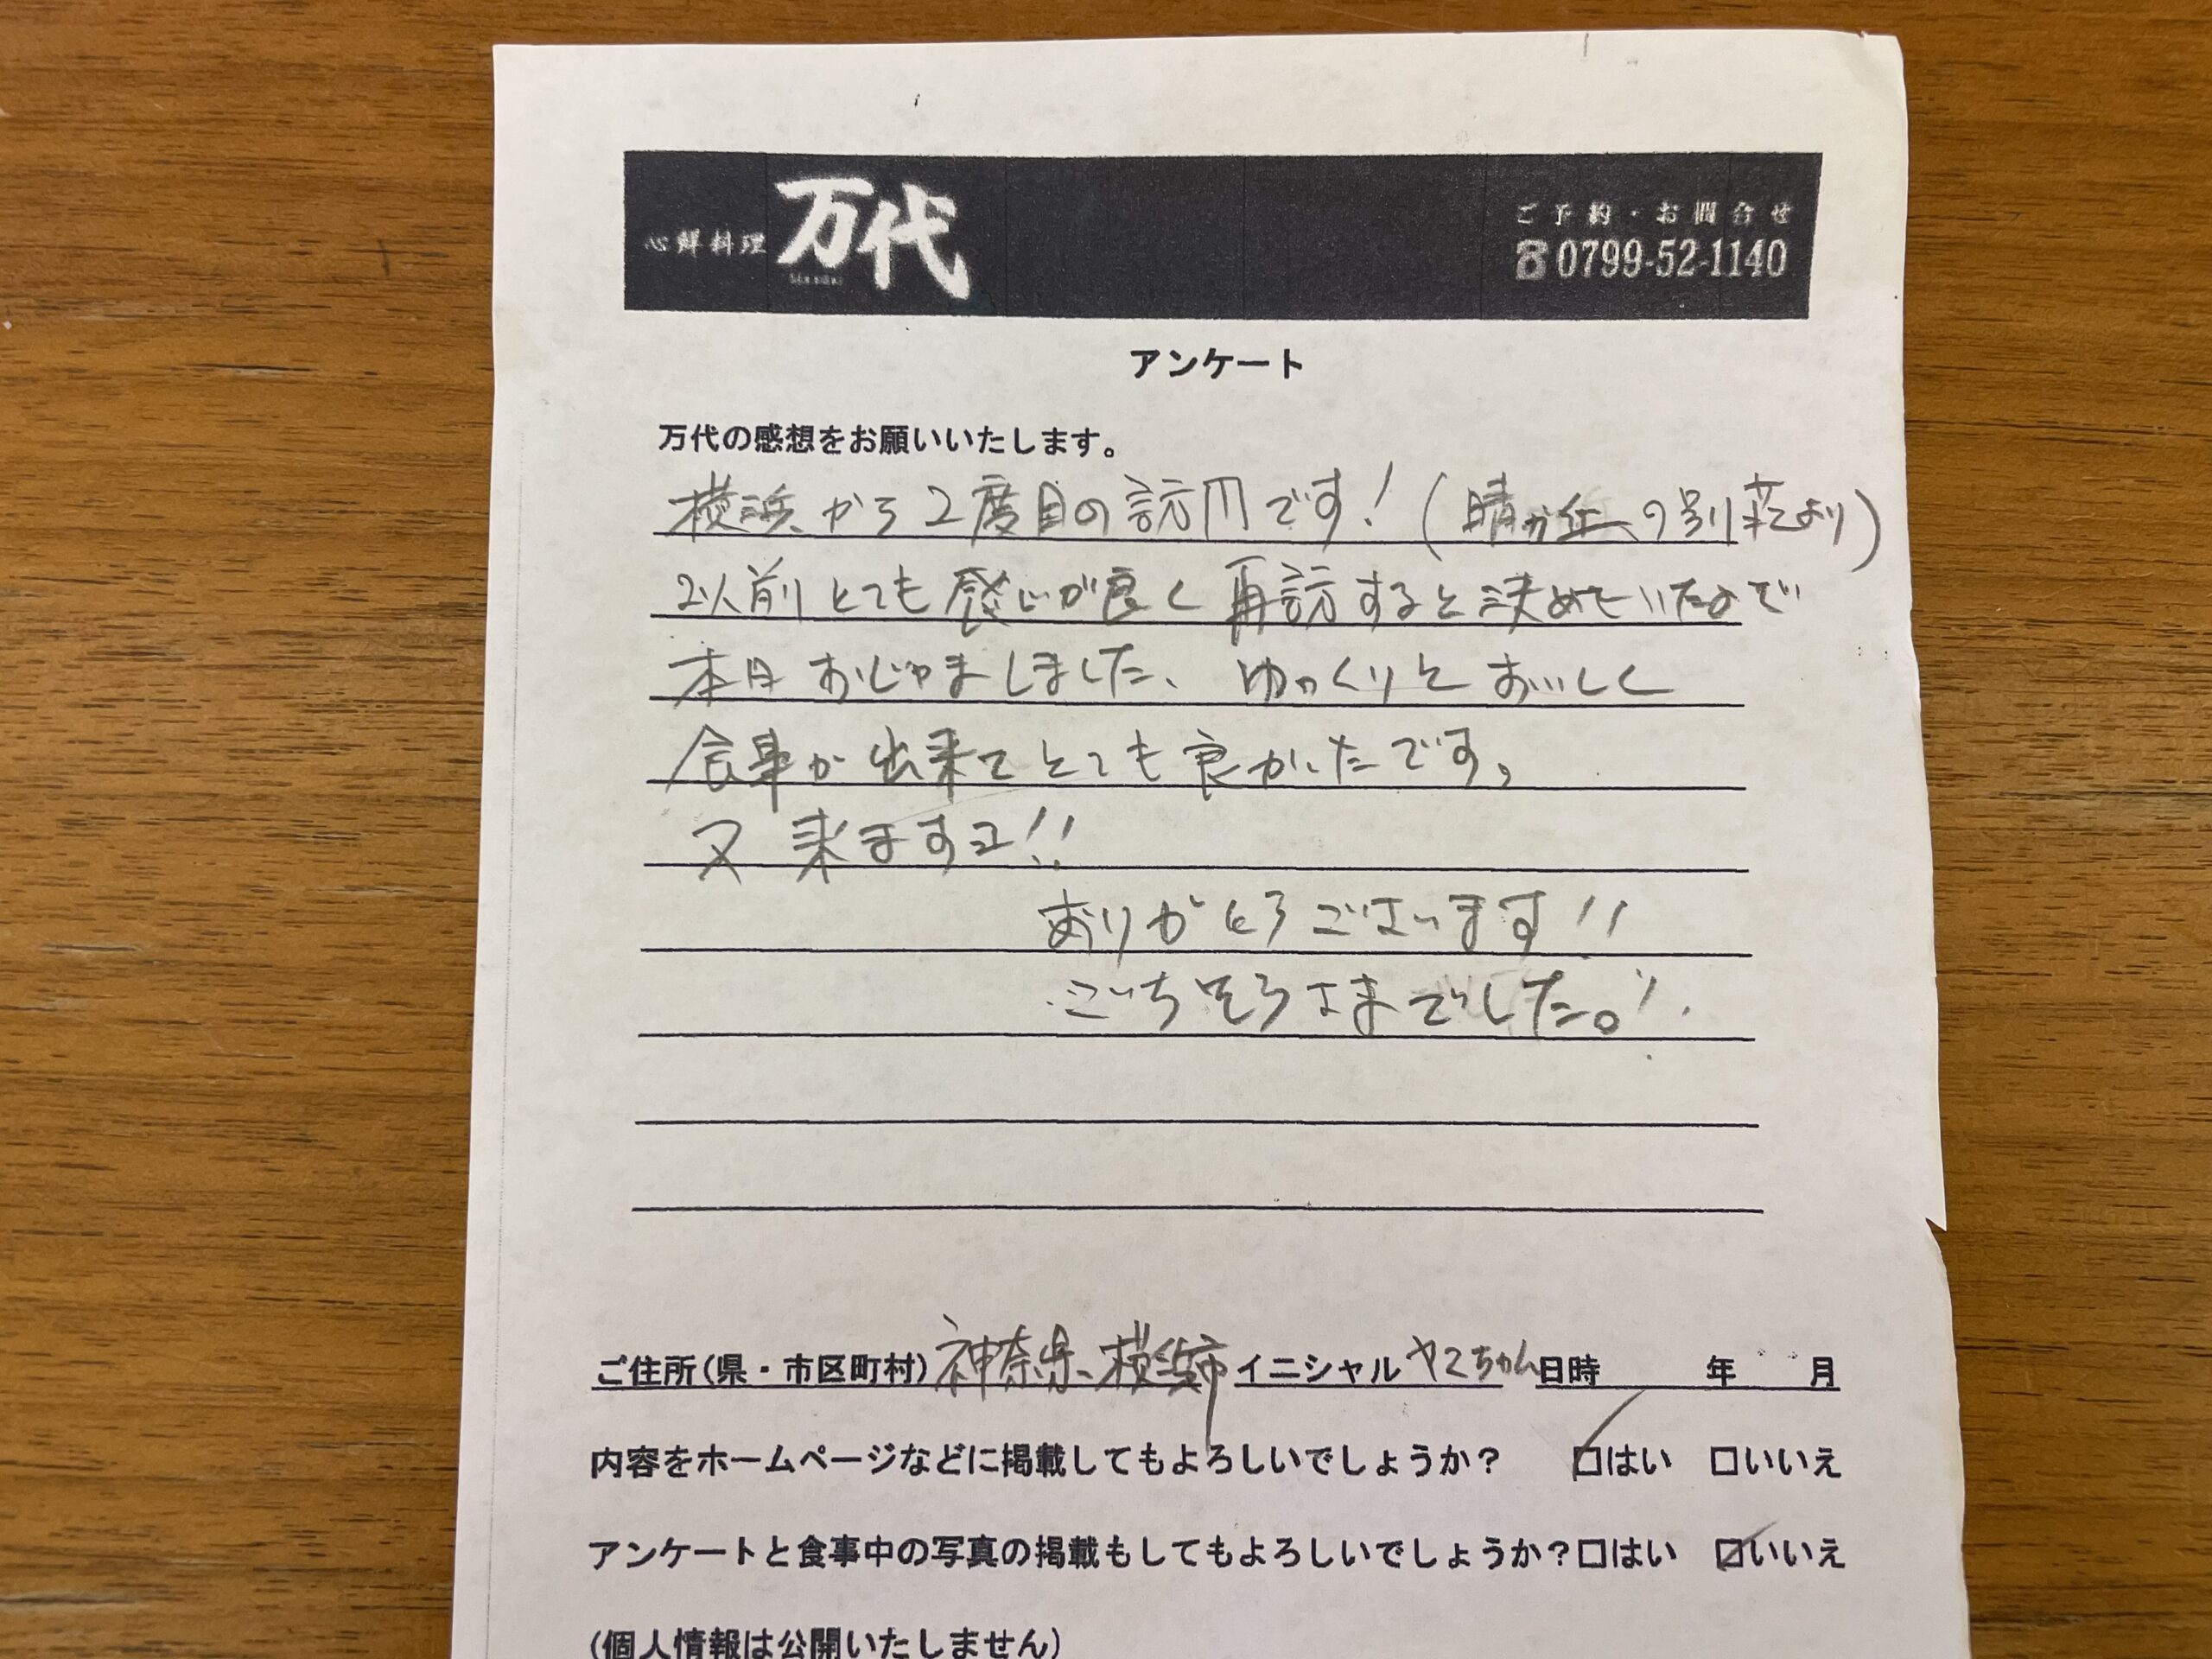 心鮮料理 万代
ご予約・お問合せ
☎0799-52-1140
アンケート
万代の感想をお願いいたします。
横浜から2度目の訪問です!(晴ヶ丘の別荘より)
以前とても感じが良く再訪すると決めていたので
本日おじゃましました、ゆっくりとおいしく
食事が出来てとても良かったです。
又来ますヨ!!
ありがとうございます!!
ごちそうさまでした。!
ご住所(県・市区町村)神奈県、横浜市 イニシャル ヤマちゃん 日時 年 月
内容をホームページなどに掲載してもよろしいでしょうか? ☑はい □いいえ
アンケートと食事中の写真の掲載もしてもよろしいでしょうか?□はい ☑いいえ
(個人情報は公開いたしません)